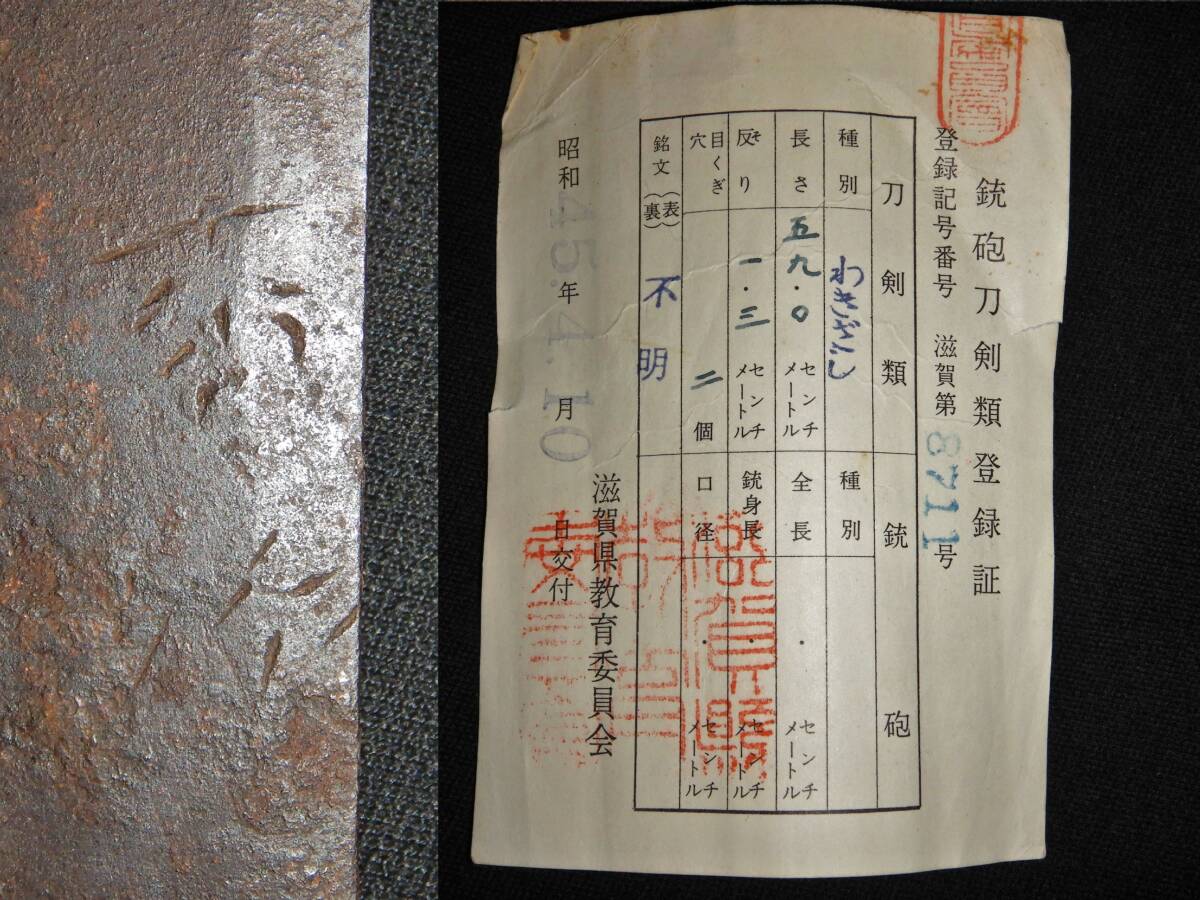 銃砲刀剣類登録証
登録記号番号 滋賀第8711号
刀剣類 銃砲
種別 わきざし 種別
長さ 五九.〇 センチメートル 全長 . センチメートル
反り そ 一.三 センチメートル 銃身長 . センチメートル
目くぎ穴 二個 口径 . センチメートル
銘文(表)(裏) 不明
滋賀県教育委員会
昭和45年4月10日交付